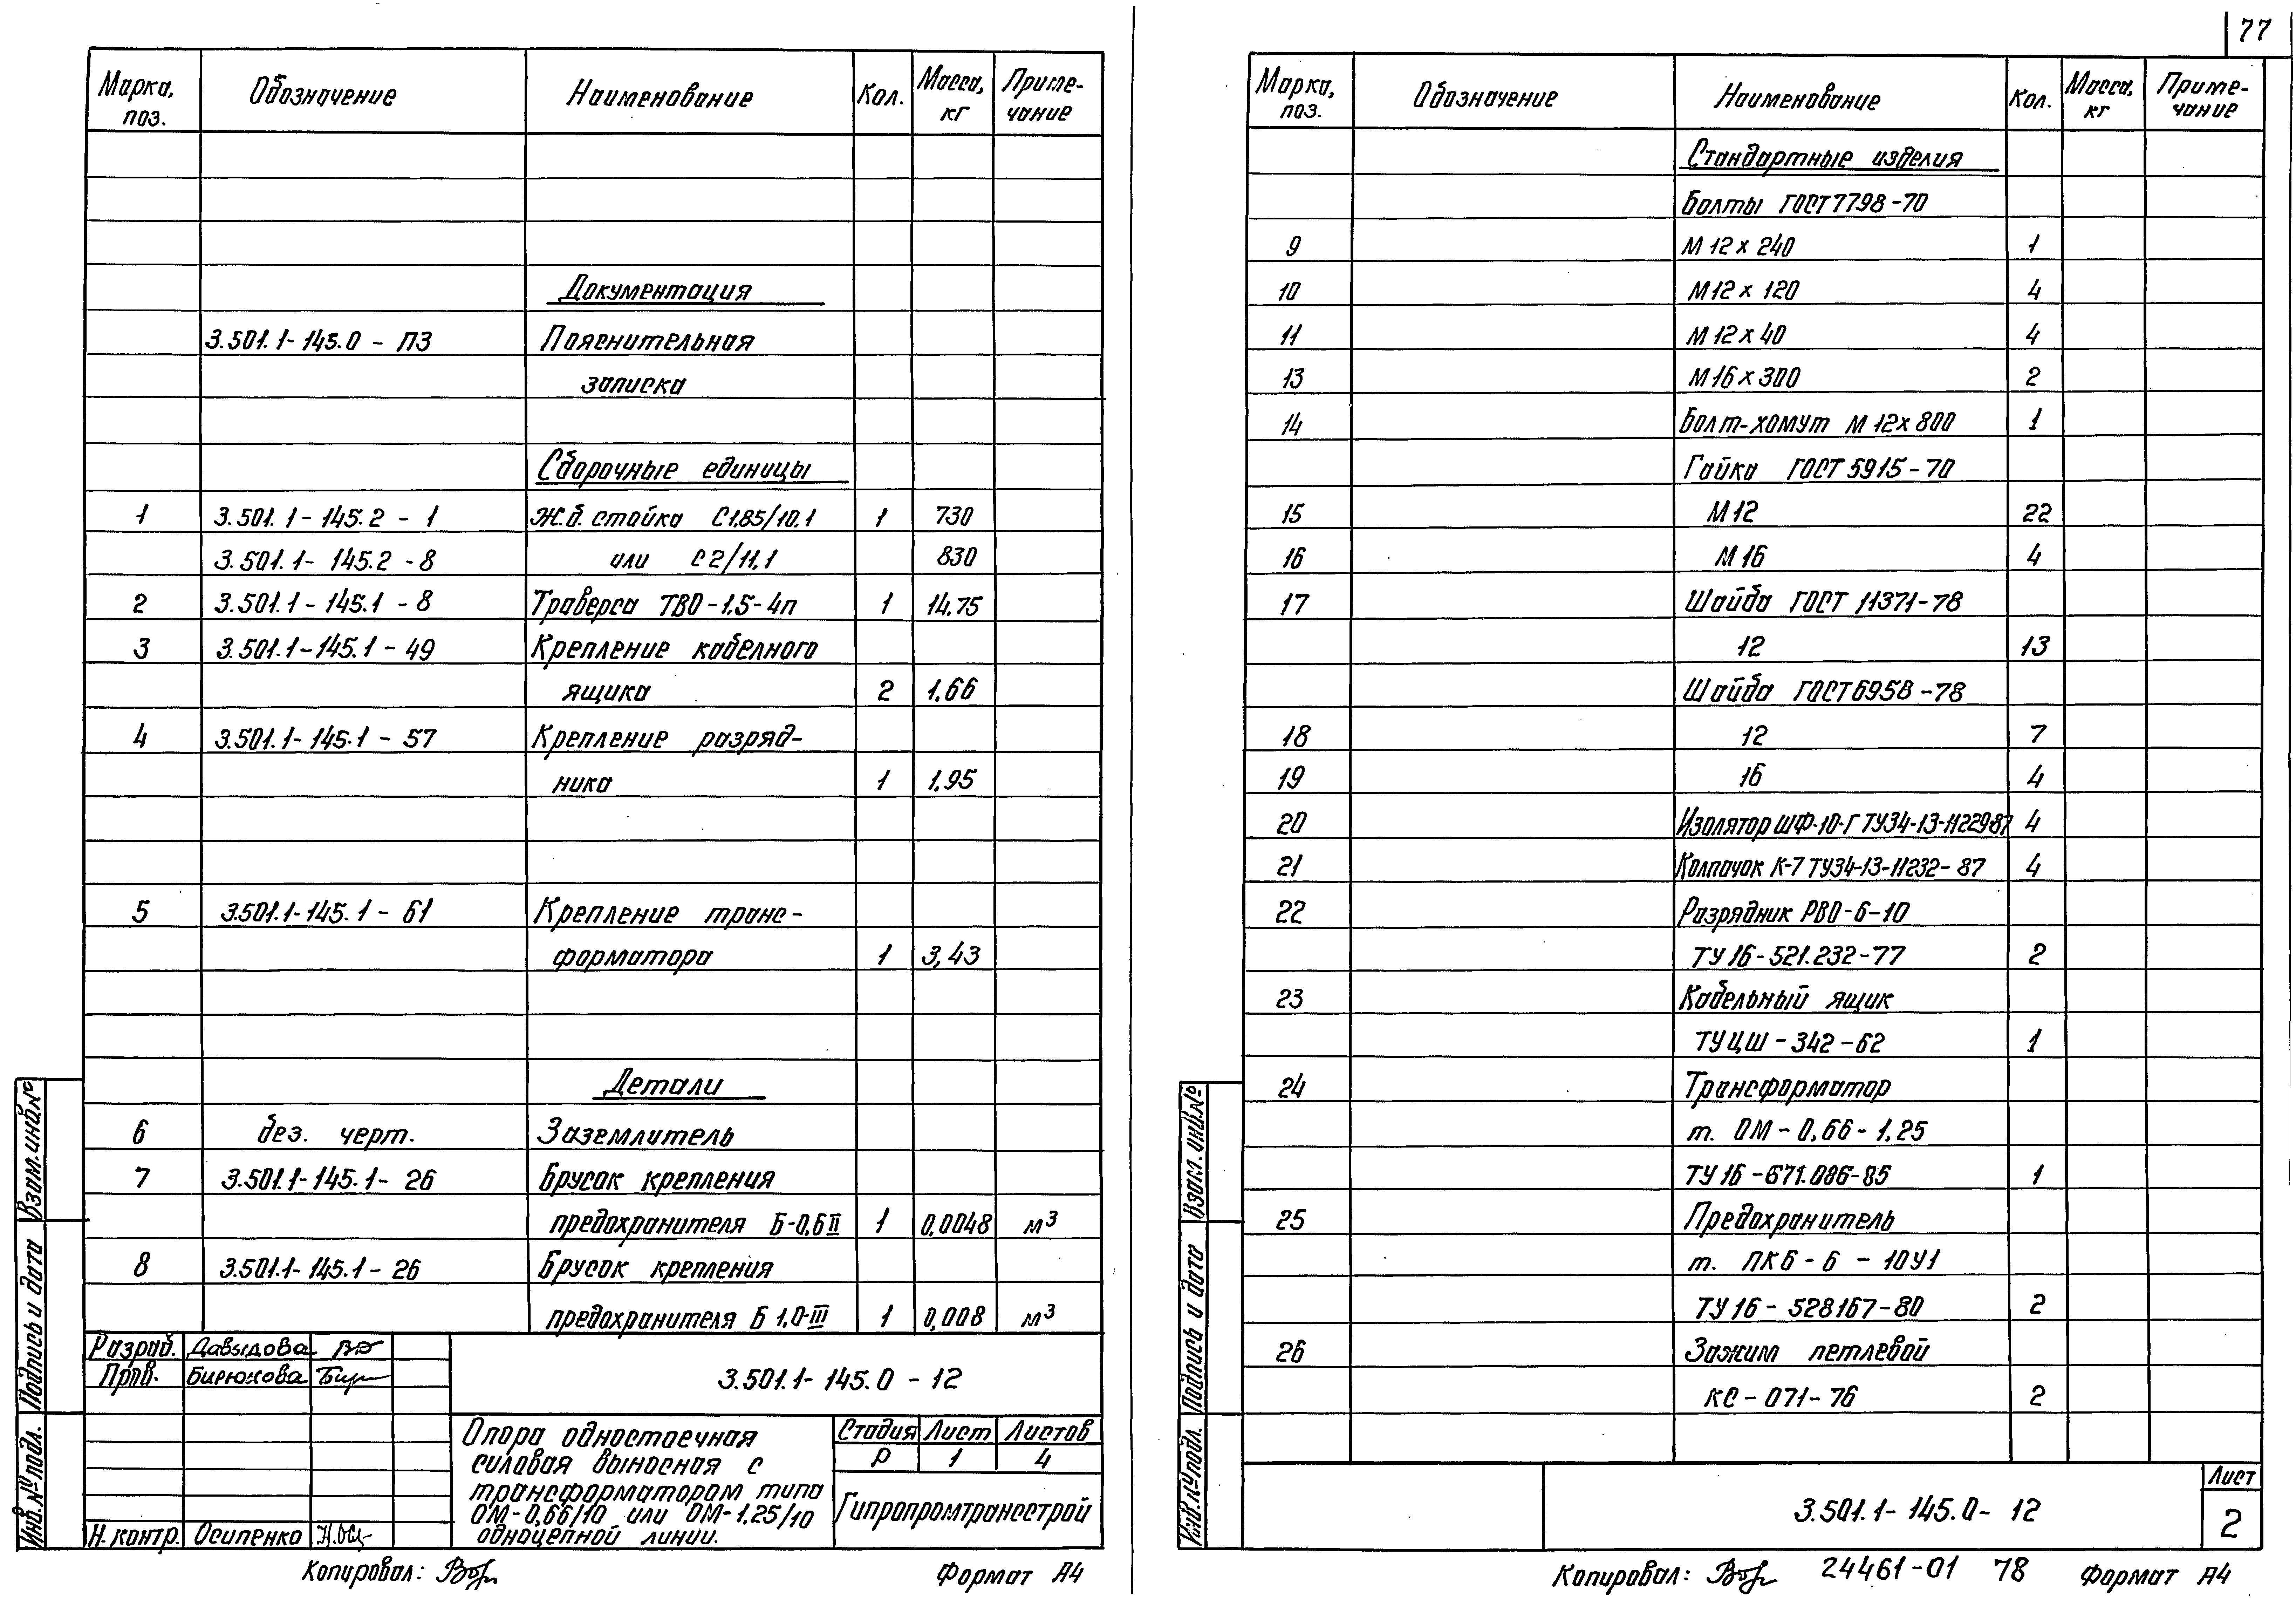 77
Марка, поз. Обозначение Наименование Кол. Масса, кг Приме-чание
Документация
3.501.1-145.0-ПЗ Пояснительная
записка
Сборочные единицы
1 3.501.1-145.2-1 Ж.б. стойка С1,85/10.1 1 730
3.501.1-145.2-8 или С2/11.1 830
2 3.501.1-145.1-8 Траверса ТВО-1,5-4п 1 14.75
3 3.501.1-145.1-49 Крепление кабелного
ящика 2 1.66
4 3.501.1-145.1-57 Крепление разряд-
ника 1 1.95
5 3.501.1-145.1-61 Крепление транс-
форматора 1 3,43
Детали
6 без. черт. Заземлитель
7 3.501.1-145.1-26 Брусок крепления
предохранителя Б-0,6II 1 0,0048 м³
8 3.501.1-145.1-26 Брусок крепления
предохранителя Б 1,0-III 1 0,008 м³
Разраб. Давыдова
Пров. Бирюкова
Н.контр. Осипенко
3.501.1-145.0-12
Опора одностоечная
силовая выносная с
трансформатором типа
ОМ-0,66/10 или ОМ-1,25/10
одноцепной линии.
Стадия Лист Листов
Р 1 4
Гипропромтрансстрой
Взам.инв.№
Подпись и дата
Инв.№ подл.
Копировал:
Формат А4
Марка, поз. Обозначение Наименование Кол. Масса, кг Приме-чание
Стандартные изделия
Болты ГОСТ 7798-70
9 М 12х240 1
10 М12х120 4
11 М12х40 4
13 М16х300 2
14 Болт-хомут М 12х800 1
Гайка ГОСТ 5915-70
15 М12 22
16 М16 4
17 Шайба ГОСТ 11371-78
12 13
Шайба ГОСТ 6958-78
18 12 7
19 16 4
20 Изолятор ШФ-10-Г ТУ34-13-11229-87 4
21 Колпачок К-7 ТУ34-13-11232-87 4
22 Разрядник РВО-6-10
ТУ 16-521.232-77 2
23 Кабельный ящик
ТУ ЦШ-342-62 1
24 Трансформатор
т. ОМ-0,66-1,25
ТУ 16-671.086-85 1
25 Предохранитель
т. ПКБ-6-10У1
ТУ 16-528167-80 2
26 Зажим петлевой
КС-071-76 2
3.501.1-145.0-12
Лист
2
Взам.инв.№
Подпись и дата
Инв.№ подл.
Копировал:
24461-01 78
Формат А4